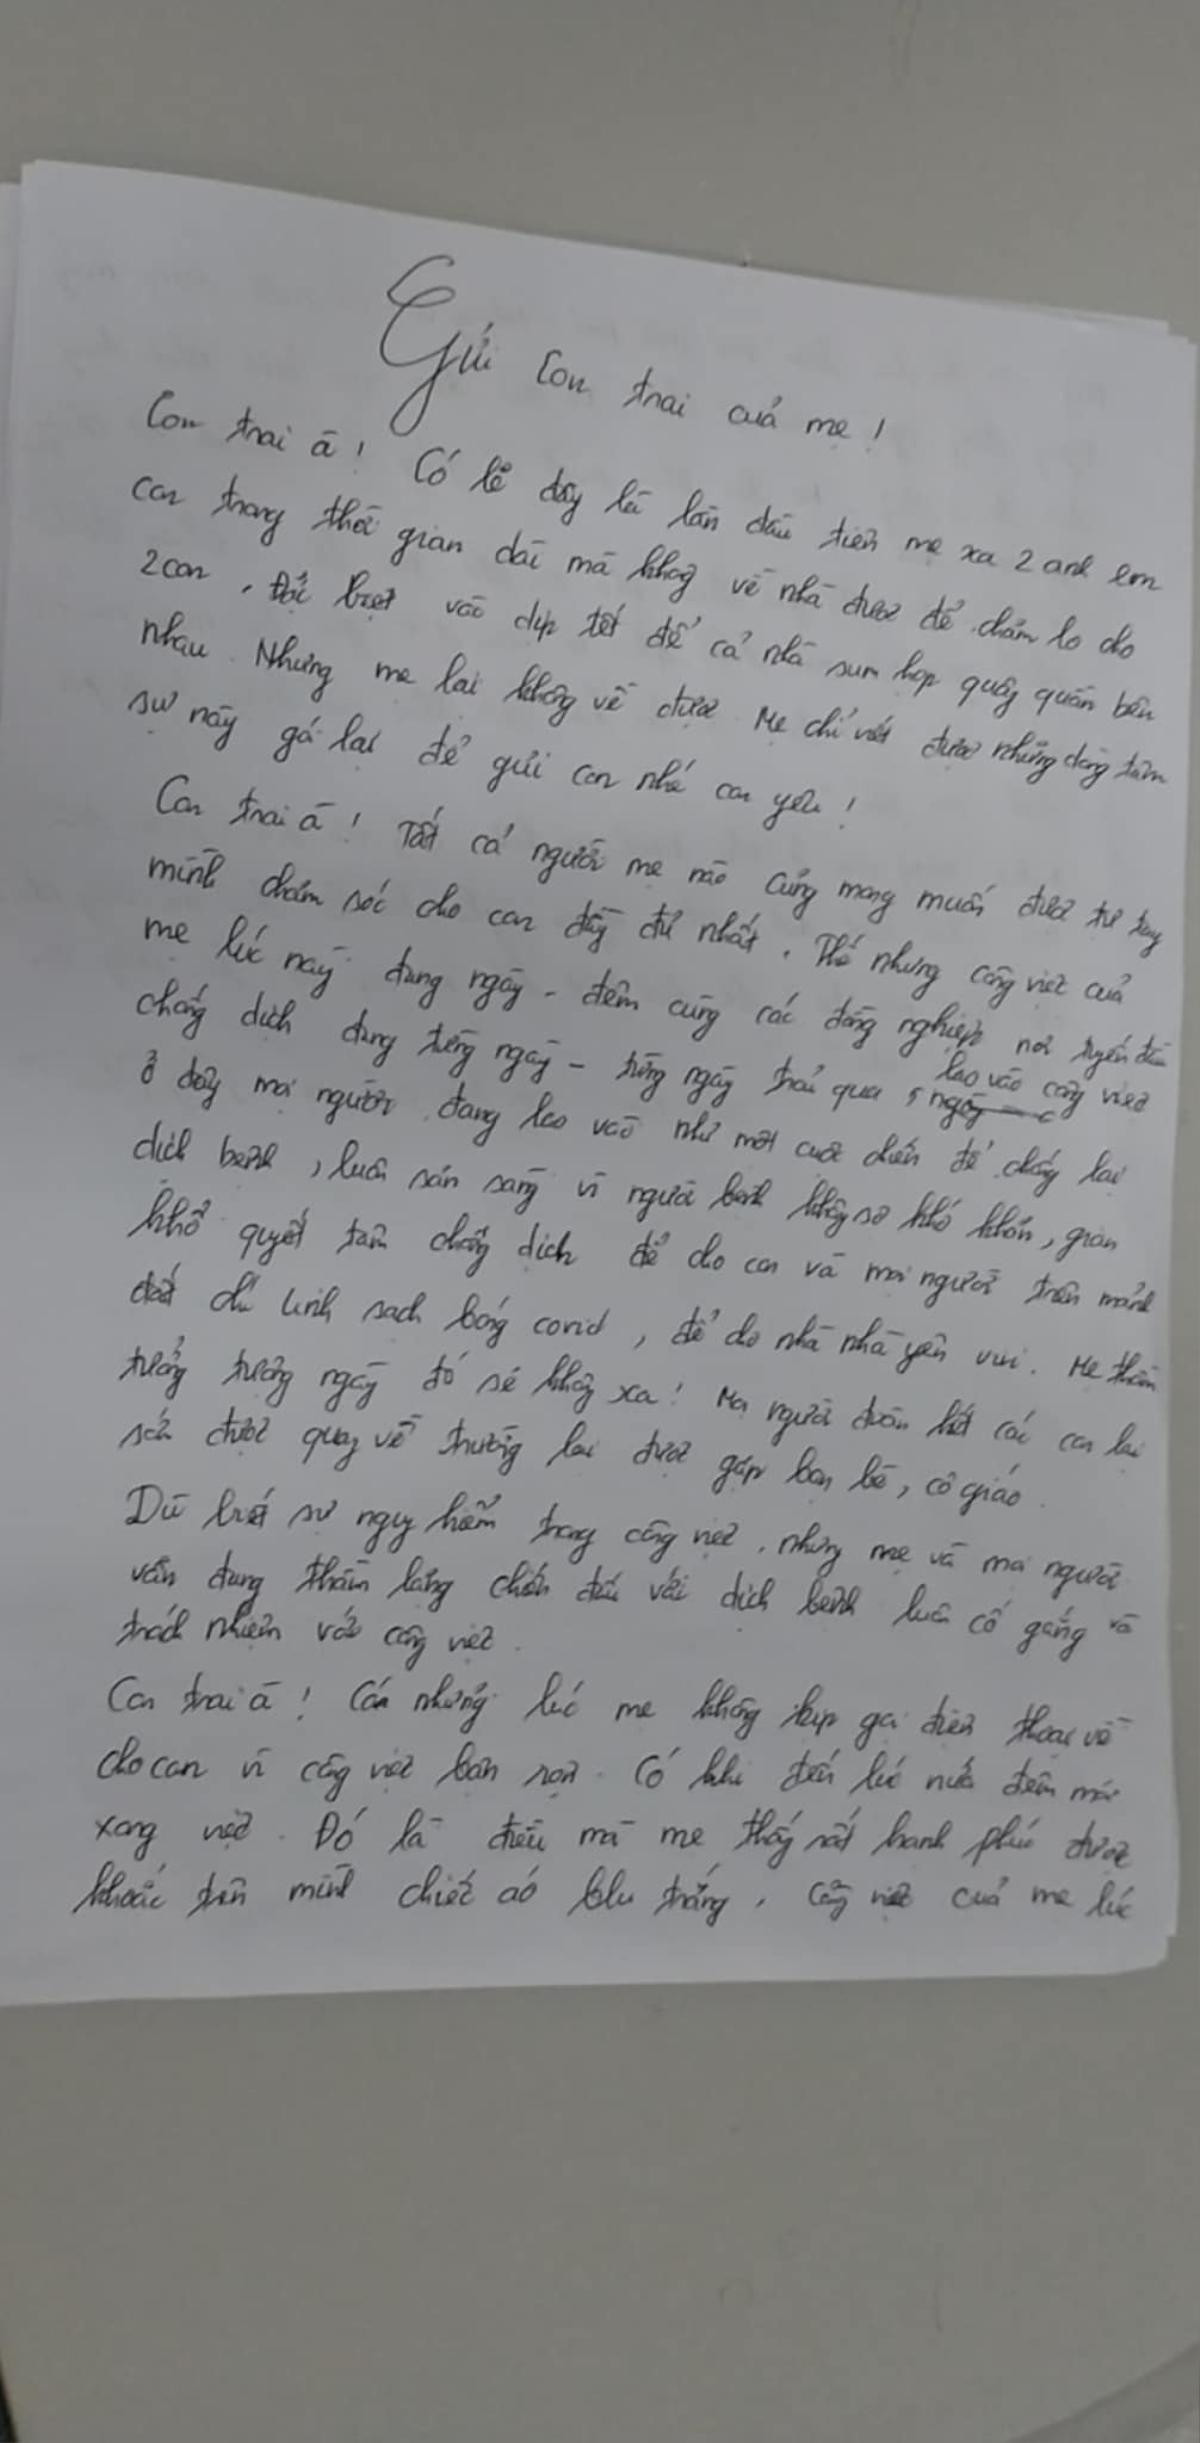 Gửi con trai của mẹ!
Con trai à! Có lẽ đây là lần đầu tiên mẹ xa 2 anh em
con trong thời gian dài mà không về nhà được để chăm lo cho
2 con, đặc biệt vào dịp tết để cả nhà sum họp quây quần bên
nhau. Nhưng mẹ lại không về được. Mẹ chỉ viết được những dòng tâm
sự này gói lại để gửi con nhé con yêu!
Con trai à! Tất cả người mẹ nào cũng mong muốn được tự tay
mình chăm sóc cho con đầy đủ nhất. Thế nhưng công việc của
mẹ lúc này đang ngày - đêm cùng các đồng nghiệp nơi tuyến đầu
chống dịch đang từng ngày - từng ngày trải qua, lao vào công việc
ở đây mọi người đang lao vào như một cuộc chiến để chống lại
dịch bệnh, luôn sẵn sàng vì người bệnh không sợ khó khăn, gian
khổ quyết tâm chống dịch để cho con và mọi người trên mảnh
đất Chí Linh sạch bóng covid, để cho nhà nhà yên vui. Mẹ thầm
tưởng tượng ngày đó sẽ không xa! Mọi người đoàn kết các con lại
sớm được quay về trường lại được gặp bạn bè, cô giáo.
Dù biết sự nguy hiểm trong công việc, nhưng mẹ và mọi người
vẫn đang thầm lặng chiến đấu với dịch bệnh luôn cố gắng và
trách nhiệm với công việc.
Con trai à! Còn những lúc mẹ không kịp gọi điện thoại về
cho con vì công việc bận rộn. Có khi đến lúc nửa đêm mới
xong việc. Đó là điều mà mẹ thấy rất hạnh phúc được
khoác trên mình chiếc áo blu trắng, công việc của mẹ lúc